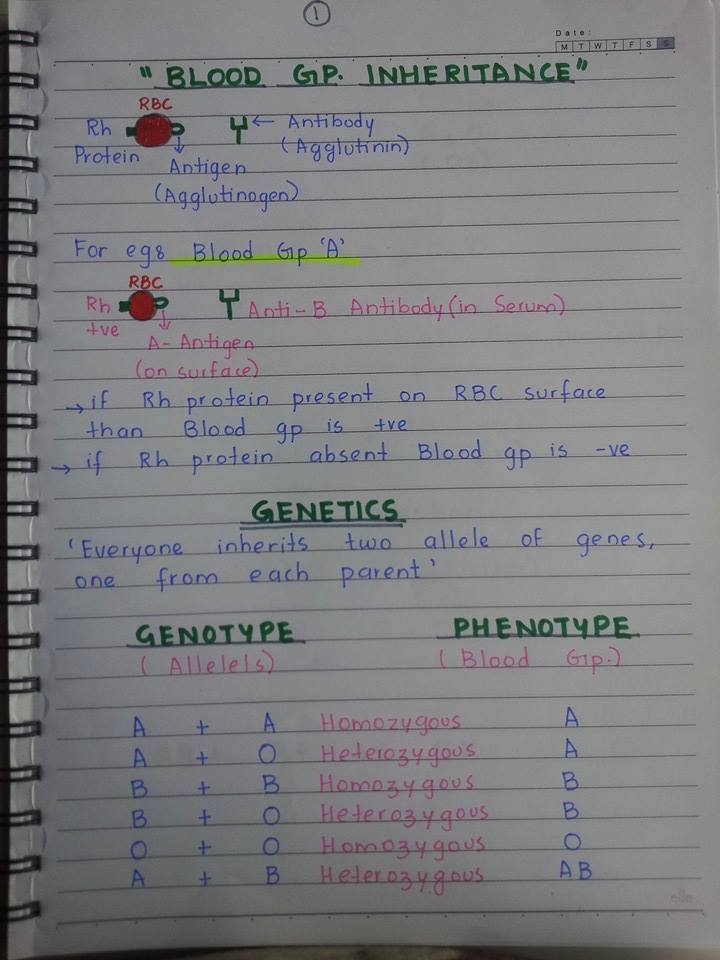 1
Date:
M T W T F S S
" BLOOD GP. INHERITANCE"
RBC
Rh Protein
Antigen
(Agglutinogen)
← Antibody
(Agglutinin)
For eg8 Blood Gp 'A'
RBC
Rh
+ve
A- Antigen
(on surface)
Anti-B Antibody (in Serum)
→ if Rh protein present on RBC surface
than Blood gp is +ve
→ if Rh protein absent Blood gp is -ve
GENETICS
'Everyone inherits two allele of genes,
one from each parent'
GENOTYPE PHENOTYPE
(Allelels) (Blood Gp.)
A + A Homozygous A
A + O Heterozygous A
B + B Homozygous B
B + O Heterozygous B
O + O Homozygous O
A + B Heterozygous AB